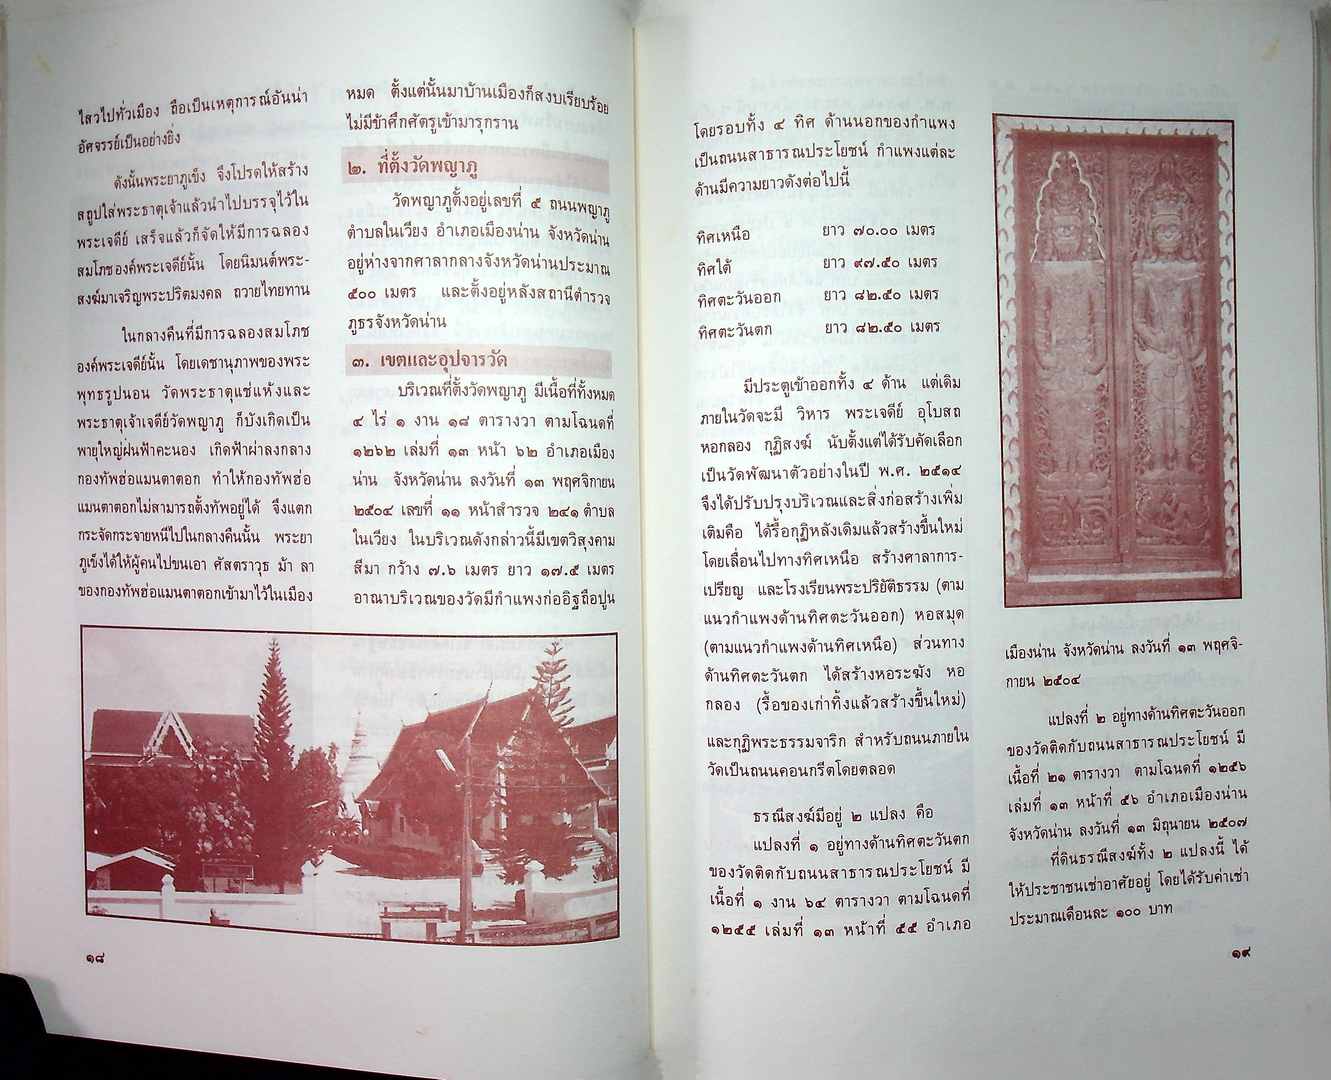 ไสวไปทั่วเมือง ถือเป็นเหตุการณ์อันน่า
อัศจรรย์เป็นอย่างยิ่ง
ดังนั้นพระยาภูเข็ง จึงโปรดให้สร้าง
สถูปใส่พระธาตุเจ้าแล้วนำไปบรรจุไว้ใน
พระเจดีย์ เสร็จแล้วก็จัดให้มีการฉลอง
สมโภชองค์พระเจดีย์นั้น โดยนิมนต์พระ-
สงฆ์มาเจริญพระปริตมงคล ถวายไทยทาน
ในกลางคืนที่มีการฉลองสมโภช
องค์พระเจดีย์นั้น โดยเดชานุภาพของพระ
พุทธรูปนอน วัดพระธาตุแช่แห้งและ
พระธาตุเจ้าเจดีย์วัดพญาภู ก็บังเกิดเป็น
พายุใหญ่ฝนฟ้าคะนอง เกิดฟ้าผ่าลงกลาง
กองทัพฮ่อแมนตาตอก ทำให้กองทัพฮ่อ
แมนตาตอกไม่สามารถตั้งทัพอยู่ได้ จึงแตก
กระจัดกระจายหนีไปในกลางคืนนั้น พระยา
ภูเข็งได้ให้ผู้คนไปขนเอา ศัสตราวุธ ม้า ลา
ของกองทัพฮ่อแมนตาตอกเข้ามาไว้ในเมือง
หมด ตั้งแต่นั้นมาบ้านเมืองก็สงบเรียบร้อย
ไม่มีข้าศึกศัตรูเข้ามารุกราน
๒. ที่ตั้งวัดพญาภู
วัดพญาภูตั้งอยู่เลขที่ ๕ ถนนพญาภู
ตำบลในเวียง อำเภอเมืองน่าน จังหวัดน่าน
อยู่ห่างจากศาลากลางจังหวัดน่านประมาณ
๕๐๐ เมตร และตั้งอยู่หลังสถานีตำรวจ
ภูธรจังหวัดน่าน
๓. เขตและอุปจารวัด
บริเวณที่ตั้งวัดพญาภู มีเนื้อที่ทั้งหมด
๔ ไร่ ๑ งาน ๑๘ ตารางวา ตามโฉนดที่
๑๒๖๒ เล่มที่ ๑๓ หน้า ๖๒ อำเภอเมือง
น่าน จังหวัดน่าน ลงวันที่ ๑๓ พฤศจิกายน
๒๕๐๔ เลขที่ ๑๑ หน้าสำรวจ ๒๔๑ ตำบล
ในเวียง ในบริเวณดังกล่าวนี้มีเขตวิสุงคาม
สีมา กว้าง ๗.๖ เมตร ยาว ๑๗.๕ เมตร
อาณาบริเวณของวัดมีกำแพงก่ออิฐถือปูน
๑๘
โดยรอบทั้ง ๔ ทิศ ด้านนอกของกำแพง
เป็นถนนสาธารณประโยชน์ กำแพงแต่ละ
ด้านมีความยาวดังต่อไปนี้
ทิศเหนือ ยาว ๗๐.๐๐ เมตร
ทิศใต้ ยาว ๙๗.๕๐ เมตร
ทิศตะวันออก ยาว ๘๒.๕๐ เมตร
ทิศตะวันตก ยาว ๘๒.๕๐ เมตร
มีประตูเข้าออกทั้ง ๔ ด้าน แต่เดิม
ภายในวัดจะมี วิหาร พระเจดีย์ อุโบสถ
หอกลอง กุฏิสงฆ์ นับตั้งแต่ได้รับคัดเลือก
เป็นวัดพัฒนาตัวอย่างในปี พ.ศ. ๒๕๑๔
จึงได้ปรับปรุงบริเวณและสิ่งก่อสร้างเพิ่ม
เติมคือ ได้รื้อกุฏิหลังเดิมแล้วสร้างขึ้นใหม่
โดยเลื่อนไปทางทิศเหนือ สร้างศาลาการ-
เปรียญ และโรงเรียนพระปริยัติธรรม (ตาม
แนวกำแพงด้านทิศตะวันออก) หอสมุด
(ตามแนวกำแพงด้านทิศเหนือ) ส่วนทาง
ด้านทิศตะวันตก ได้สร้างหอระฆัง หอ
กลอง (รื้อของเก่าทิ้งแล้วสร้างขึ้นใหม่)
และกุฏิพระธรรมจาริก สำหรับถนนภายใน
วัดเป็นถนนคอนกรีตโดยตลอด
ธรณีสงฆ์มีอยู่ ๒ แปลง คือ
แปลงที่ ๑ อยู่ทางด้านทิศตะวันตก
ของวัดติดกับถนนสาธารณประโยชน์ มี
เนื้อที่ ๑ งาน ๖๔ ตารางวา ตามโฉนดที่
๑๒๕๕ เล่มที่ ๑๓ หน้าที่ ๕๕ อำเภอ
เมืองน่าน จังหวัดน่าน ลงวันที่ ๑๓ พฤศจิ-
กายน ๒๕๐๔
แปลงที่ ๒ อยู่ทางด้านทิศตะวันออก
ของวัดติดกับถนนสาธารณประโยชน์ มี
เนื้อที่ ๒๑ ตารางวา ตามโฉนดที่ ๑๒๕๖
เล่มที่ ๑๓ หน้าที่ ๕๖ อำเภอเมืองน่าน
จังหวัดน่าน ลงวันที่ ๑๓ มิถุนายน ๒๕๐๗
ที่ดินธรณีสงฆ์ทั้ง ๒ แปลงนี้ ได้
ให้ประชาชนเช่าอาศัยอยู่ โดยได้รับค่าเช่า
ประมาณเดือนละ ๑๐๐ บาท
๑๙